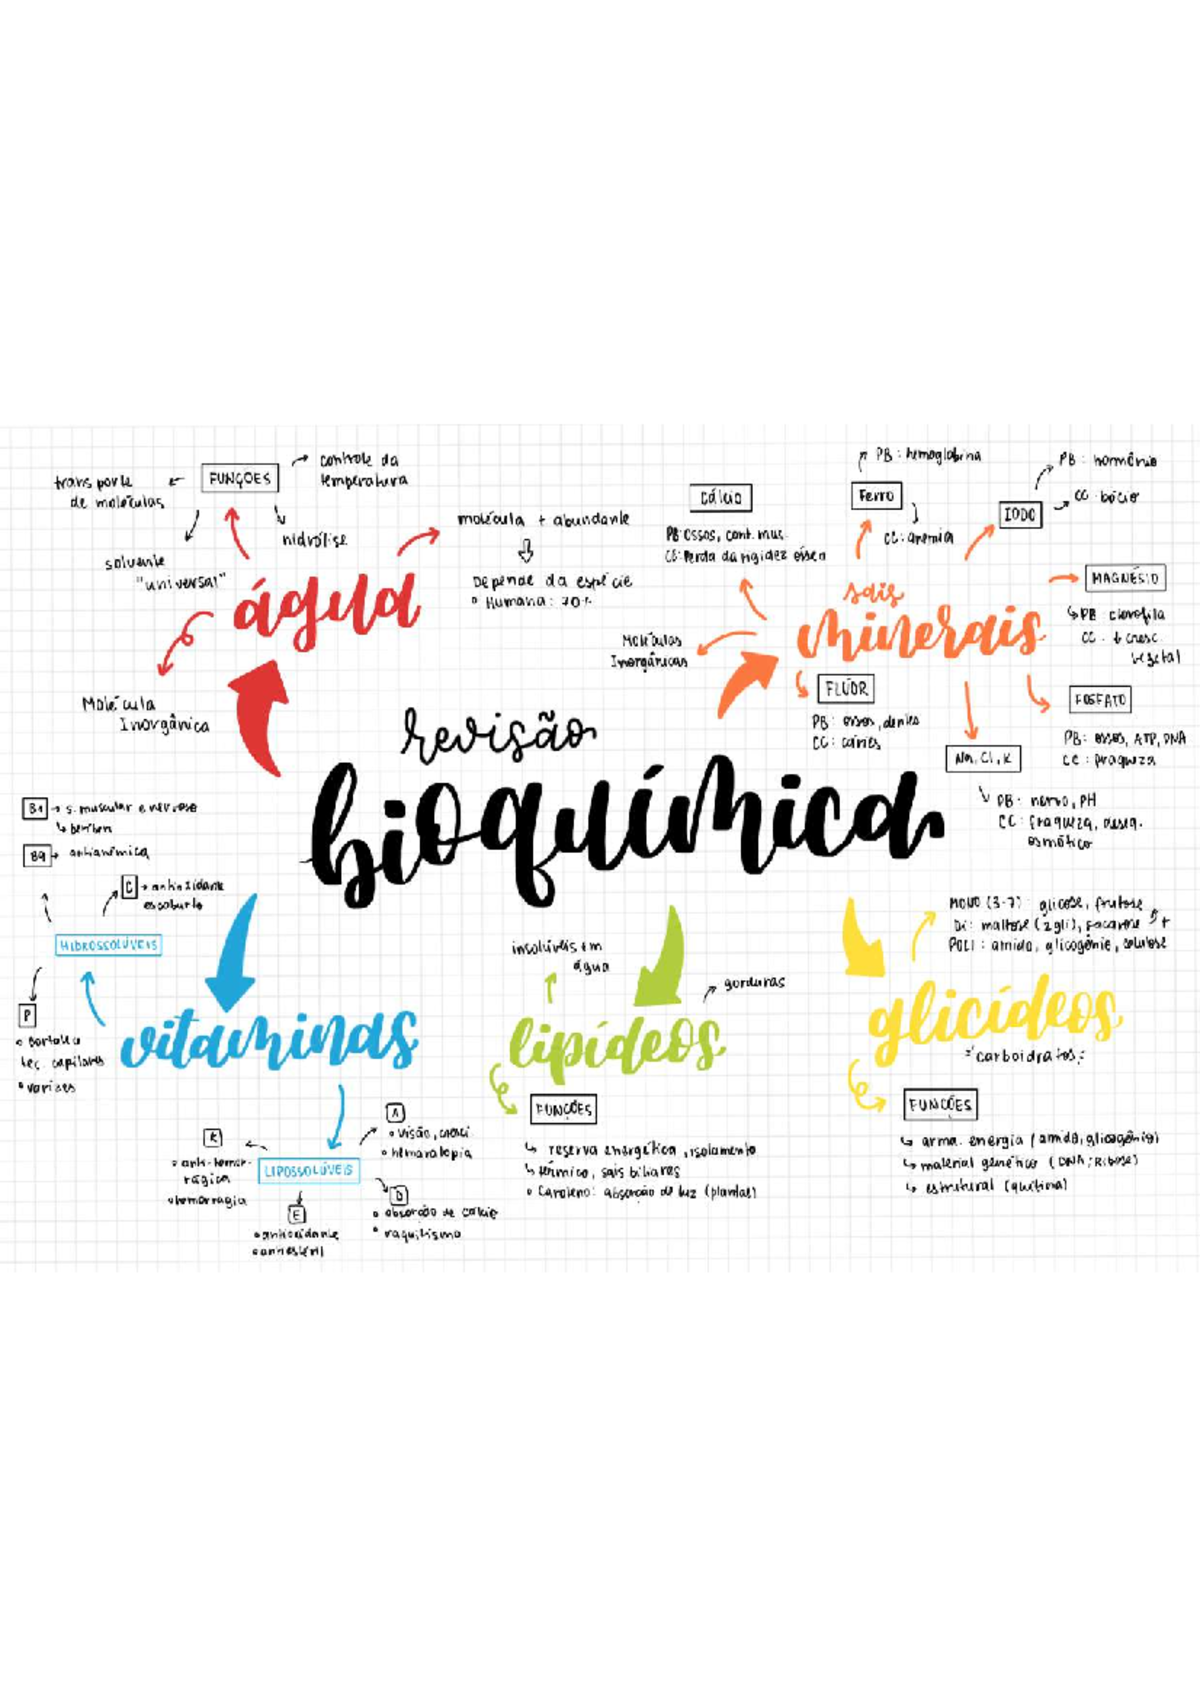 revisão
bioquímica
água
FUNÇOES
controle da
temperatura
transporte
de moléculas
solvente
"universal"
hidrólise
molécula + abundante
Depende da espécie
Humana: 70%
Molécula
Inorgânica
sais
minerais
Moléculas
Inorgânicas
Cálcio
PB: ossos, cont. mus.
CC: Perda da rigidez óssea
Ferro
PB: hemoglobina
CC: anemia
IODO
PB: hormônio
CC: bócio
MAGNÉSIO
PB: clorofila
CC: ↓ cresc.
vegetal
FLÚOR
PB: ossos, dentes
CC: cáries
Na, Cl, K
PB: nervo, PH
CC: fraqueza, deseq.
osmótico
FOSFATO
PB: ossos, ATP, DNA
CC: fraqueza
vitaminas
HIDROSSOLÚVEIS
B1 → s. muscular e nervoso
beribéri
B9 → antianêmica
C → antioxidante
escorbuto
P
tec. capilares
varizes
LIPOSSOLÚVEIS
A
visão, cresci.
hemeralopia
D
absorção de cálcio
raquitismo
E
antioxidante
antiestéril
K
anti-hemor-
rágica
hemorragia
lipídeos
insolúveis em
água
gorduras
FUNCÕES
reserva energética, isolamento
térmico, sais biliares
Caroteno: absorção de luz (plantas)
glicídeos
"carboidratos"
MONO (3-7): glicose, frutose
Di: maltose (2 gli), sacarose
POLI: amido, glicogênio, celulose
FUNCÕES
arma. energia (amido, glicogênio)
material genético (DNA; Ribose)
estrutural (quitina)